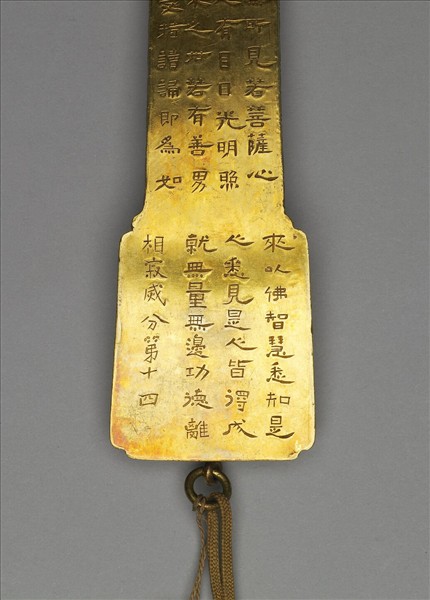 所見若菩薩心
有目日光明照
來之世若有善男
受持讀誦即為如
來以佛智慧悉知是
人悉見是人皆得成
就無量無邊功德離
相寂滅分第十四